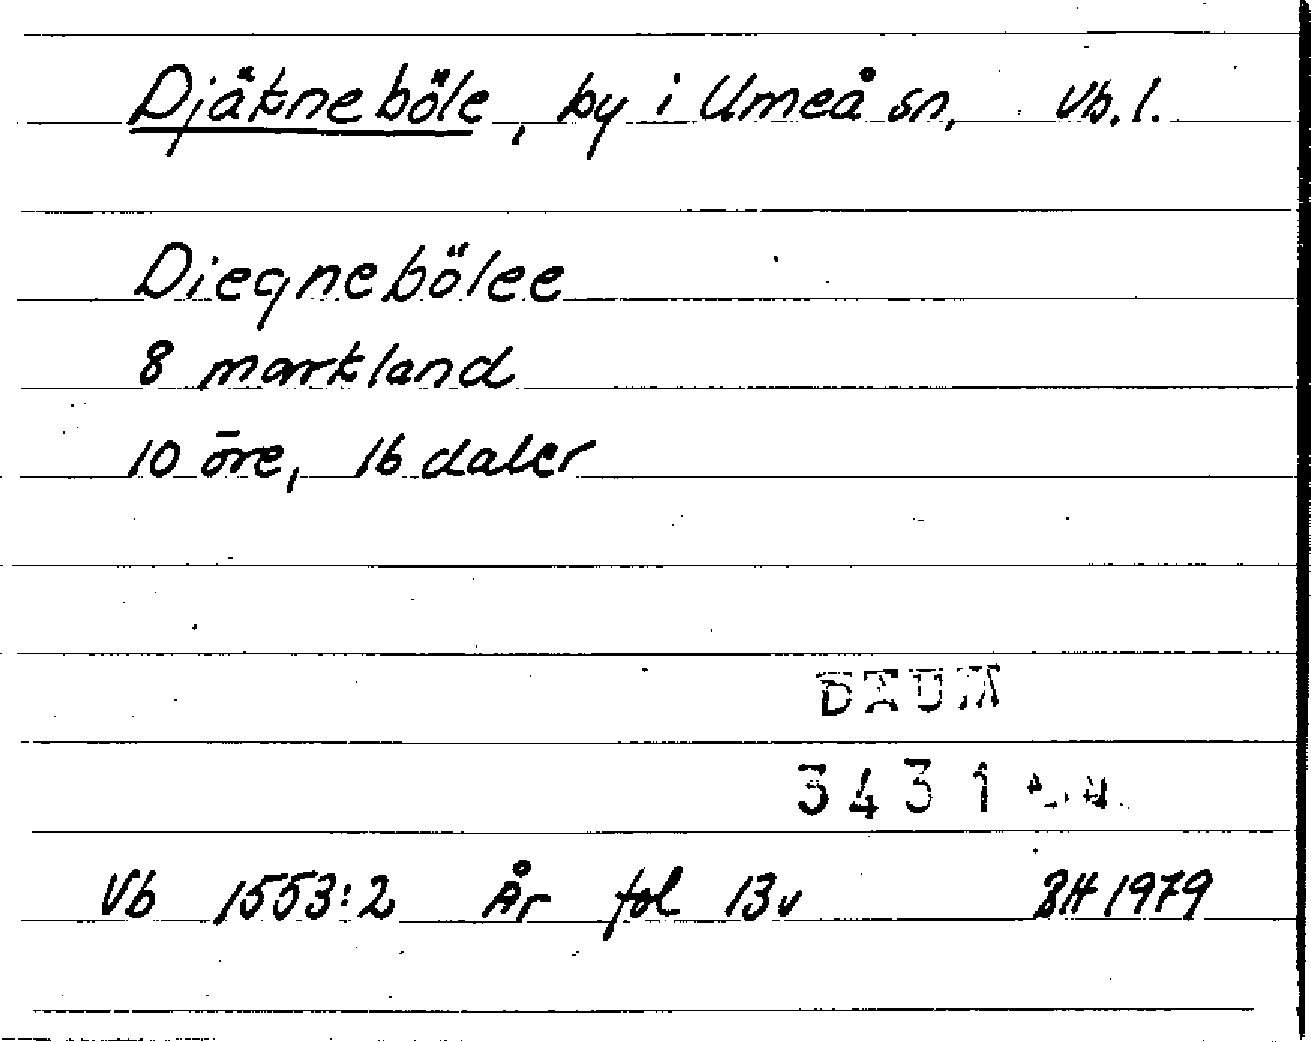 Djäkneböle, by i Umeå sn. Vb. l.
Dieqnebölee
8 markland
10 öre, 16 daler
DAUM
3431
Vb 1553:2 År fol 13v BH 1979